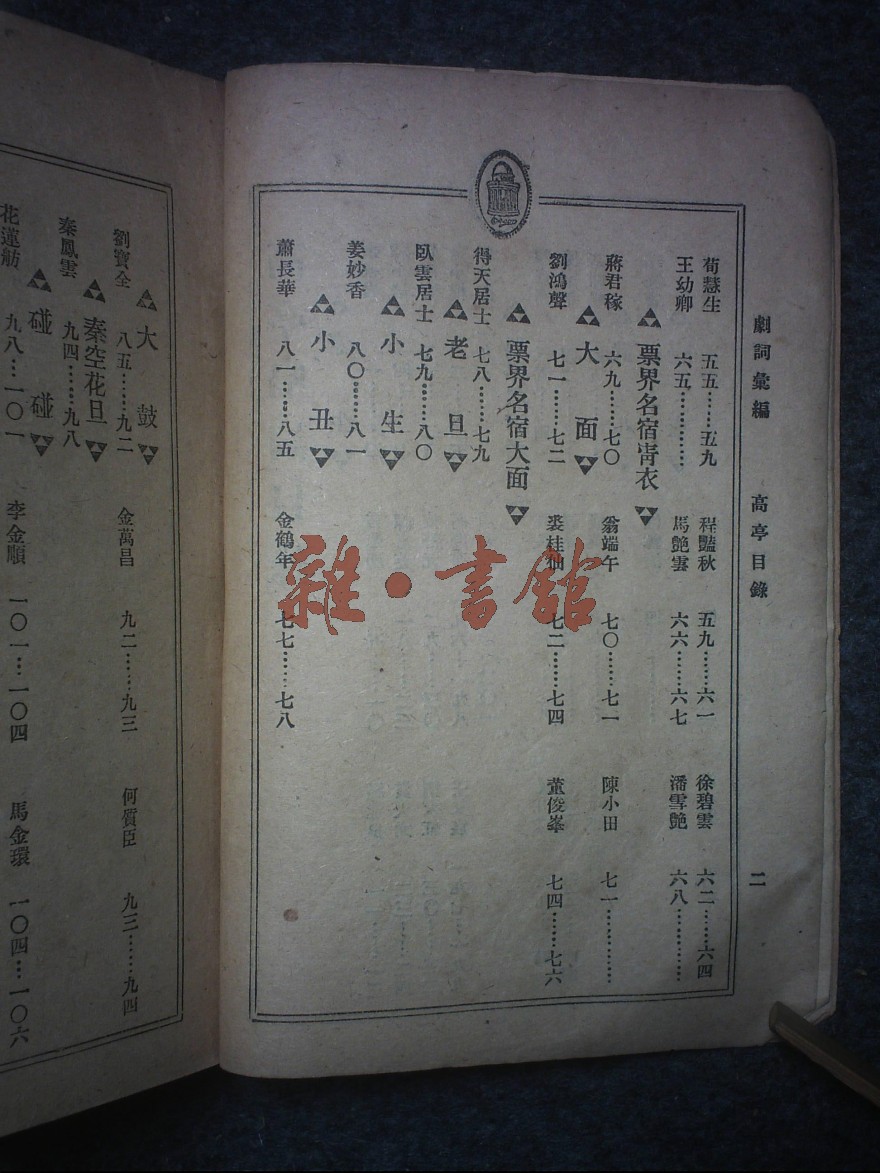 劇詞彙編 高亭目錄 二
荀慧生 五五……五九 程豔秋 五九……六一 徐碧雲 六二……六四
王幼卿 六五………… 馬艷雲 六六……六七 潘雪艷 六八…………
票界名宿靑衣
蔣君稼 六九……七〇 翁端午 七〇……七一 陳小田 七一…………
大面
劉鴻聲 七一……七二 裘桂仙 七二……七四 董俊峯 七四……七六
票界名宿大面
得天居士 七八……七九
老旦
臥雲居士 七九……八〇
小生
姜妙香 八〇……八一
小丑
蕭長華 八一……八五 金鶴年 七七……七八
大鼓
劉寶全 八五……九二 金萬昌 九二……九三 何質臣 九三……九四
秦空花旦
秦鳳雲 九四……九八
碰碰
花蓮舫 九八…一〇一 李金順 一〇一…一〇四 馬金環 一〇四…一〇六
雜·書館